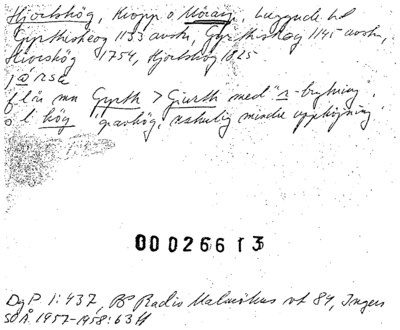 Hjortshög, Kropp o Mörarp, Luggude hd
Gyrthishøog 1133 avskr, Gyrthishøg 1145 avskr,
Hiorshög 1754, Hjortshög 1825
jå̀rsa
f l ån mn Gyrth > Giurth med "r-brytning",
o l hög 'gravhög, naturlig mindre upphöjning'
000266 13
DgP 1:437, Radis Malmöhus 84, Ingers
SOÅ 1957-1958:63 ff